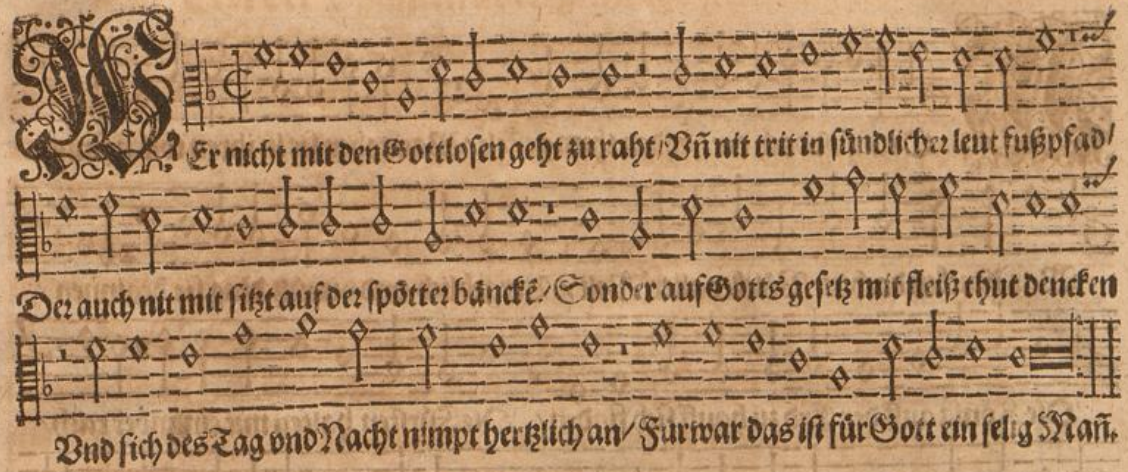 WEr nicht mit den Gottlosen geht zu raht/ Vn̄ nit trit in sündlicher leut fußpfad/
Der auch nit mit sitzt auf der spötter bänckē/ Sonder auf Gotts gesetz mit fleiß thut dencken
Vnd sich des Tag vnd Nacht nimpt hertzlich an/ Fürwar das ist für Gott ein selig Mañ.